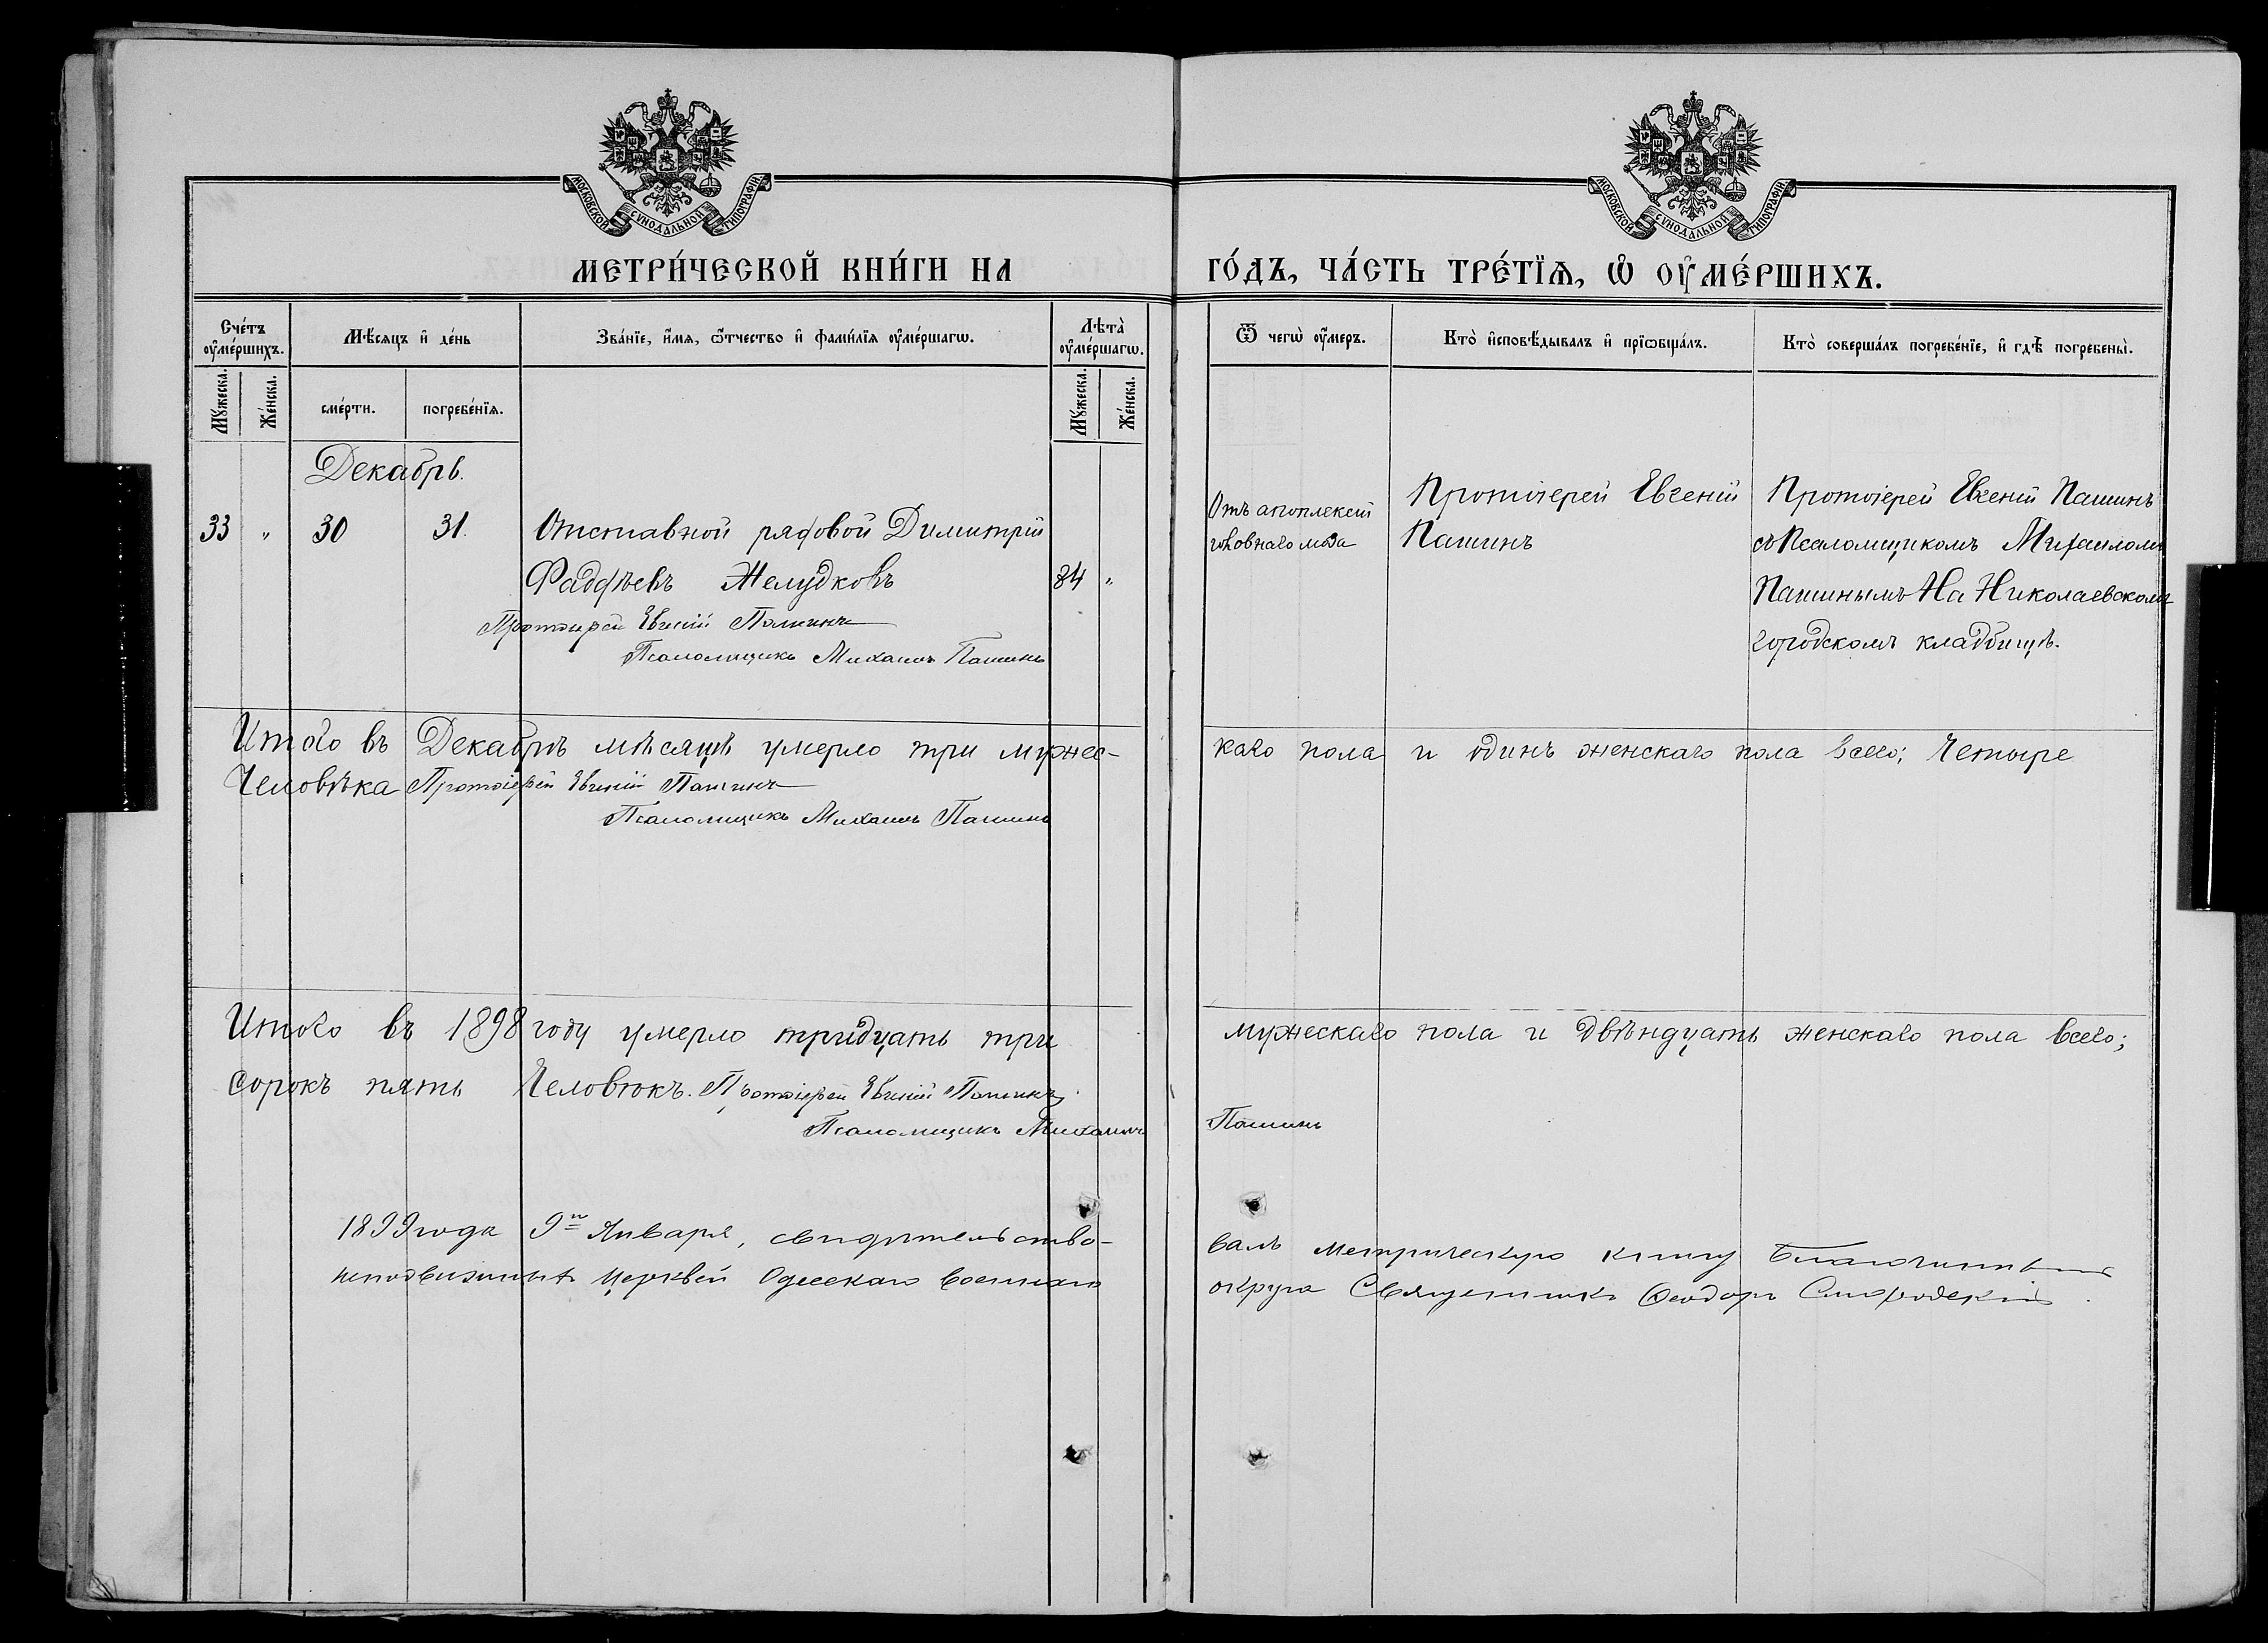 МОСКОВСКОЙ СѴНОДАЛЬНОЙ ТИПОГРАФІИ
МОСКОВСКОЙ СѴНОДАЛЬНОЙ ТИПОГРАФІИ
МЕТРИ́ЧЕСКОЙ КНИ́ГИ НА ГО́ДЪ, ЧА́СТЬ ТРЕ́ТЇѦ, Ѡ҆ ОУ҆МЕ́РШИХЪ.
Сче́тъ оу҆ме́ршихъ.
Мѣ́сяцъ и҆ де́нь
Зва́нїе, и҆́мѧ, ѻ҆́тчество и҆ фами́лїѧ оу҆ме́ршагѡ.
Лѣта̀ оу҆ме́ршагѡ.
Ѿ чегѡ̀ оу҆́меръ.
Кто̀ и҆сповѣ́дывалъ и҆ прїѡбща́лъ.
Кто̀ соверша́лъ погребе́нїе, и҆ гдѣ̀ погребены̀.
Мꙋ́жеска.
Же́нска.
сме́рти.
погребе́нїѧ.
Мꙋ́жеска.
Же́нска.
Декабрь.
33 „ 30 31. Отставной рядовой Димитрій
Фаддѣевъ Желудковъ 84 „
Протоіерей Евгеній Пашинъ
Псаломщикъ Михаилъ Пашинъ
Отъ апоплексіи
головнаго мозга
Протоіерей Евгеній
Пашинъ
Протоіерей Евгеній Пашинъ
съ Псаломщикомъ Михаиломъ
Пашинымъ На Николаевскомъ
городскомъ кладбищѣ.
Итого въ Декабрѣ мѣсяцѣ умерло три мужес-
каго пола и одинъ женскаго пола всего; Четыре
Человѣка Протоіерей Евгеній Пашинъ
Псаломщикъ Михаилъ Пашинъ
Итого въ 1898 году умерло тридцать три
мужескаго пола и двѣндцать женскаго пола всего;
Сорокъ пять Человѣкъ. Протоіерей Евгеній Пашинъ
Псаломщикъ Михаилъ
Пашинъ
1899 года 9го Января, свидѣтельство-
валъ метрическую книгу Благочинный
неподвижныхъ Церквей Одесскаго Военнаго
округа Священникъ Ѳеодоръ